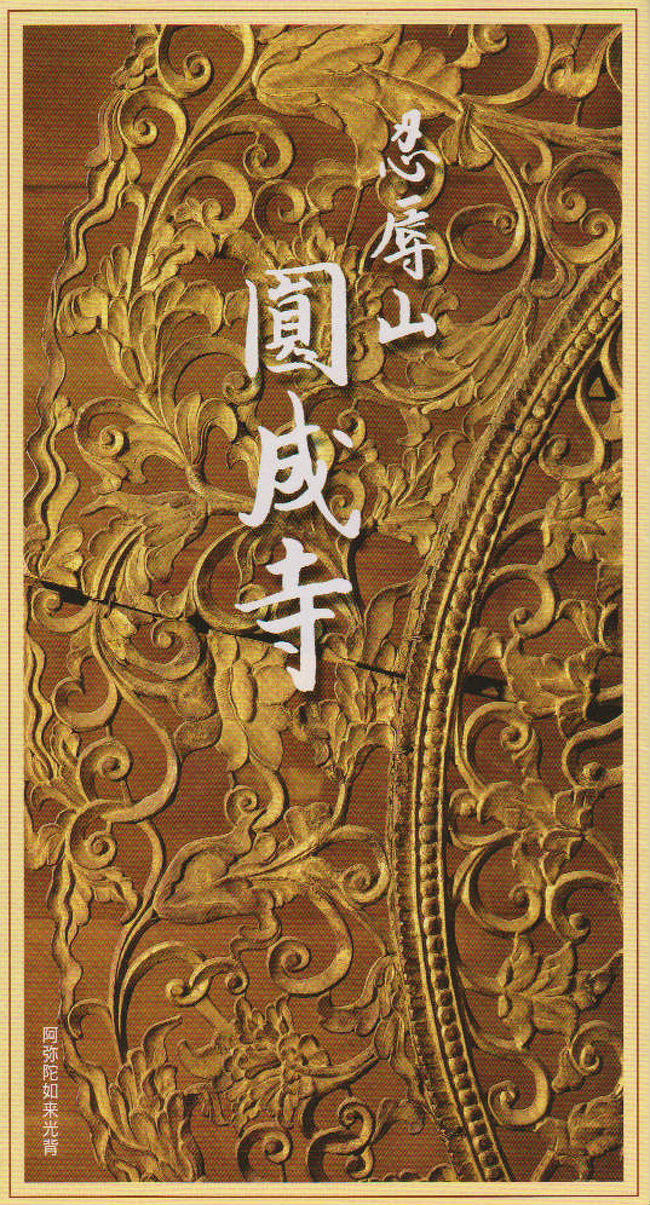 忍辱山
圓成寺
阿弥陀如来光背